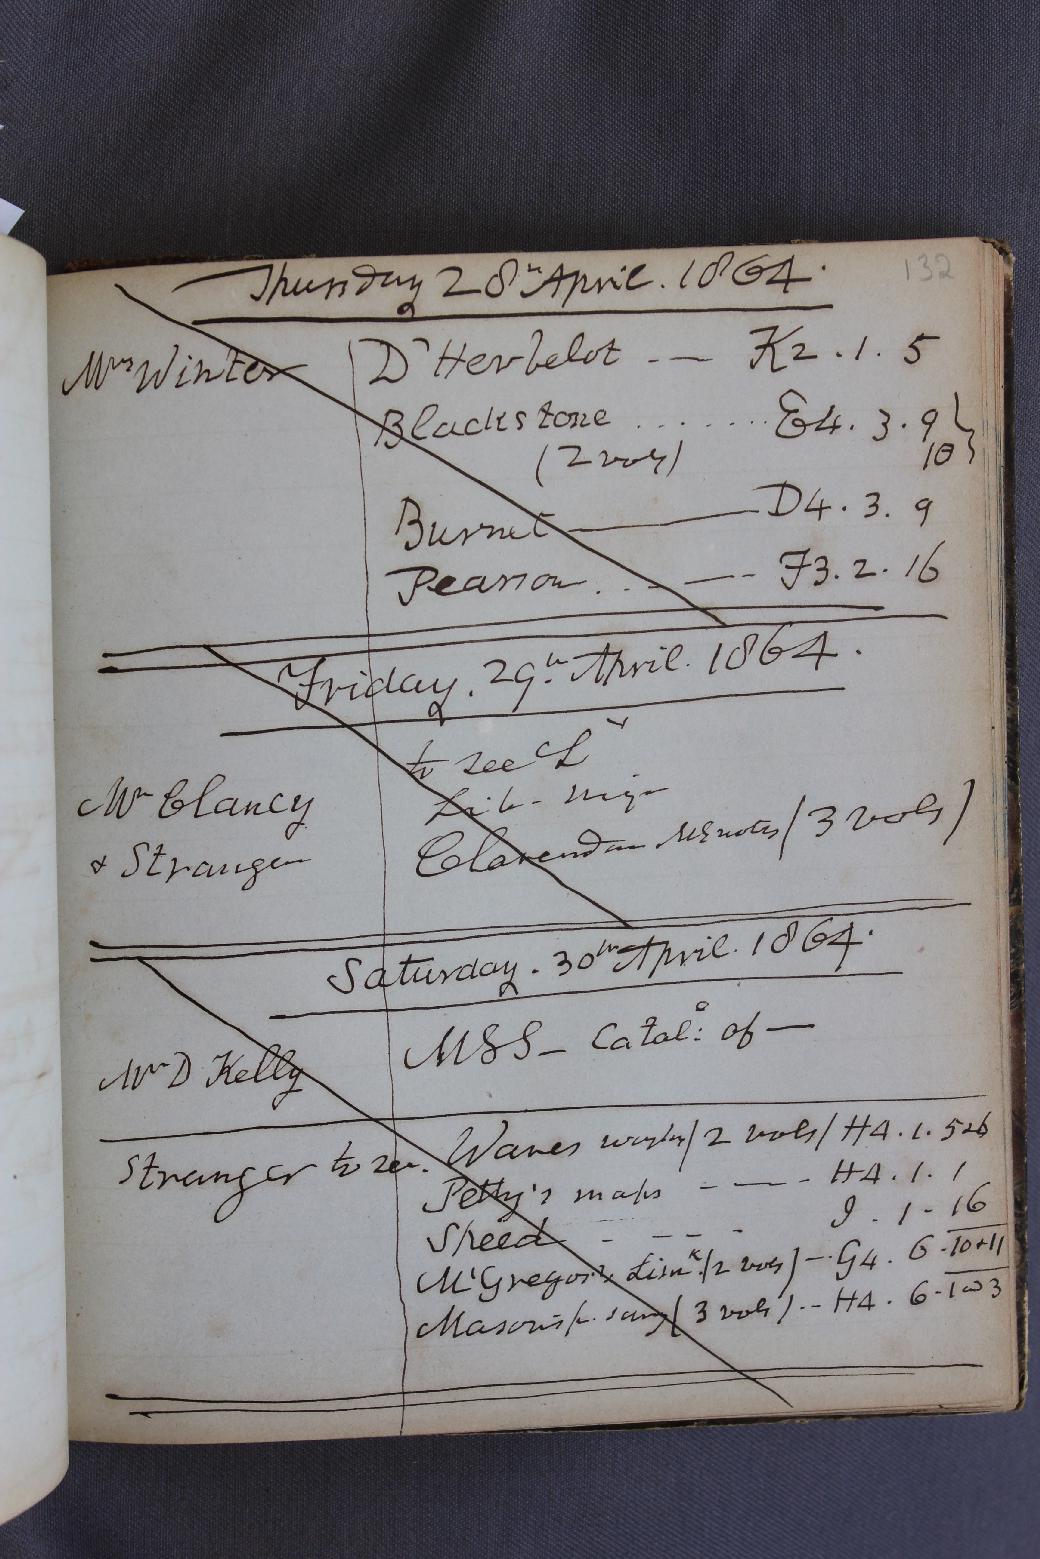 132
Thursday 28th April. 1864.
Mrs Winter D'Herbelot -- K2.1.5
Blackstone ........ E4.3.9
(2 vols) 10
Burnet — D4.3.9
Pearson ..-—-- F3.2.16
Friday. 29th April. 1864.
to see
Mr Clancy
& Stranger Clarendon MS notes (3 vols)
Saturday. 30th April. 1864.
Mr D Kelly MSS - Catal: of —
Stranger to see. Wares works (2 vols) H4.1.5&6
Petty's maps - — - - H4.1.1
Speed - - - - I.1-16
McGregor's Limk (2 vols) -- G4.6-10+11
Mason's (3 vols) -- H4.6-1 3